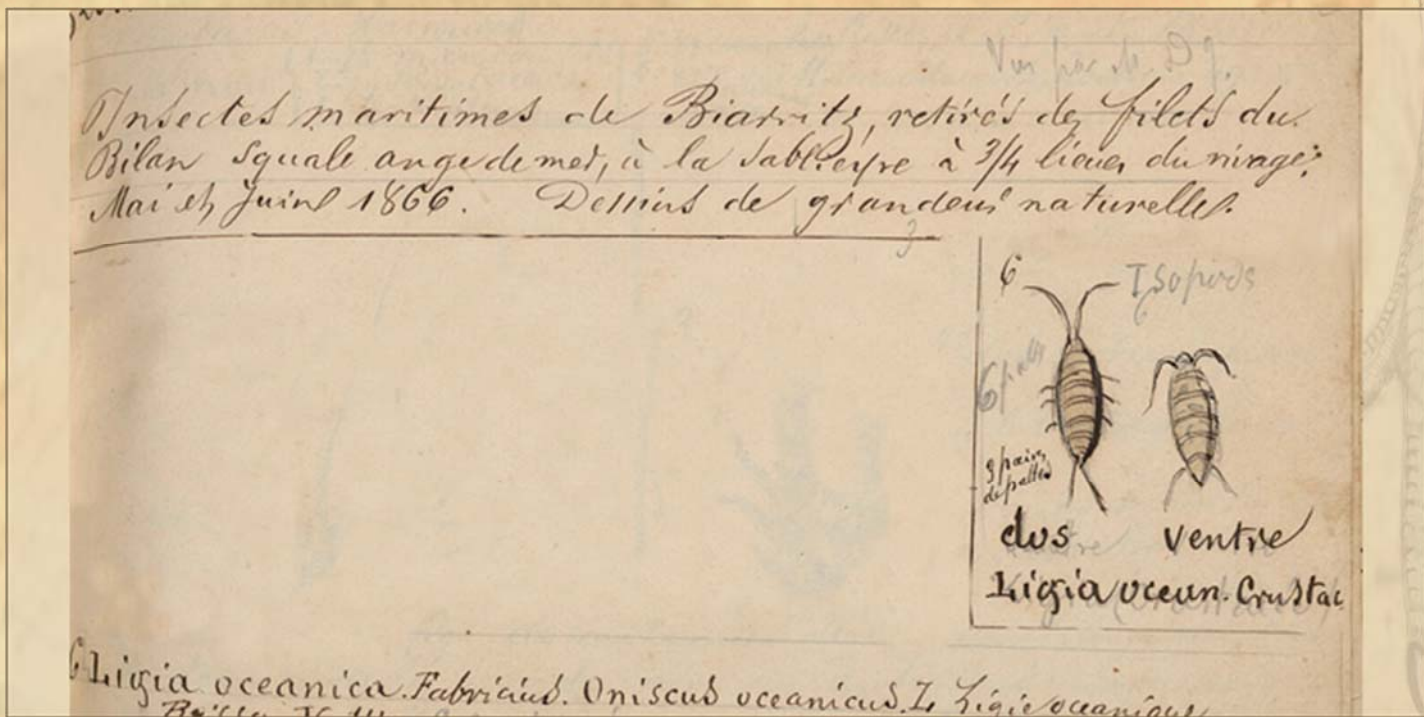 Vu par M. D
Insectes maritimes de Biarritz, retirés des filets du
Bilan squale ange de mer, à la Sablieyre à 3/4 lieues du rivage.
Mai et Juin 1866. Dessins de grandeur naturelle.
3
6 Isopods
6 patt
3 paires
de pattes
dos ventre
Ligia ocean. Crustac
6 Ligia oceanica. Fabricius. Oniscus oceanicus. L Ligie océanique